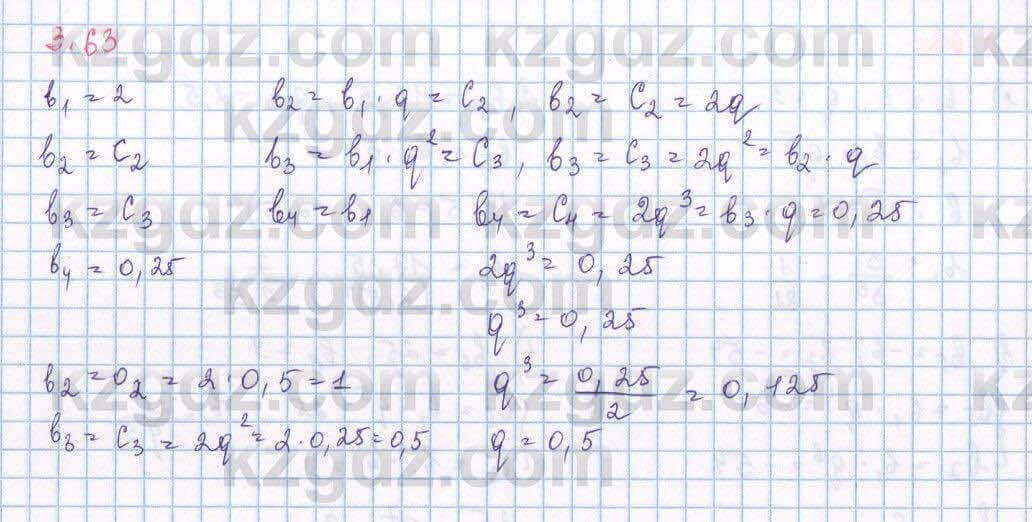 3.63
b₁ = 2 b₂ = b₁ · q = C₂, b₂ = C₂ = 2q
b₂ = C₂ b₃ = b₁ · q² = C₃, b₃ = C₃ = 2q² = b₂ · q
b₃ = C₃ b₄ = b₁ b₄ = C₄ = 2q³ = b₃ · q = 0,25
b₄ = 0,25 2q³ = 0,25
q³ = 0,25
b₂ = O₂ = 2 · 0,5 = 1 q³ = 0,25/2 = 0,125
b₃ = C₃ = 2q² = 2 · 0,25 = 0,5 q = 0,5
kzgdz.com kzgdz.com
kzgdz.com
kzgdz.com kzgdz.com
kzgdz.com
kzgdz.com kzgdz.com
kzgdz.com